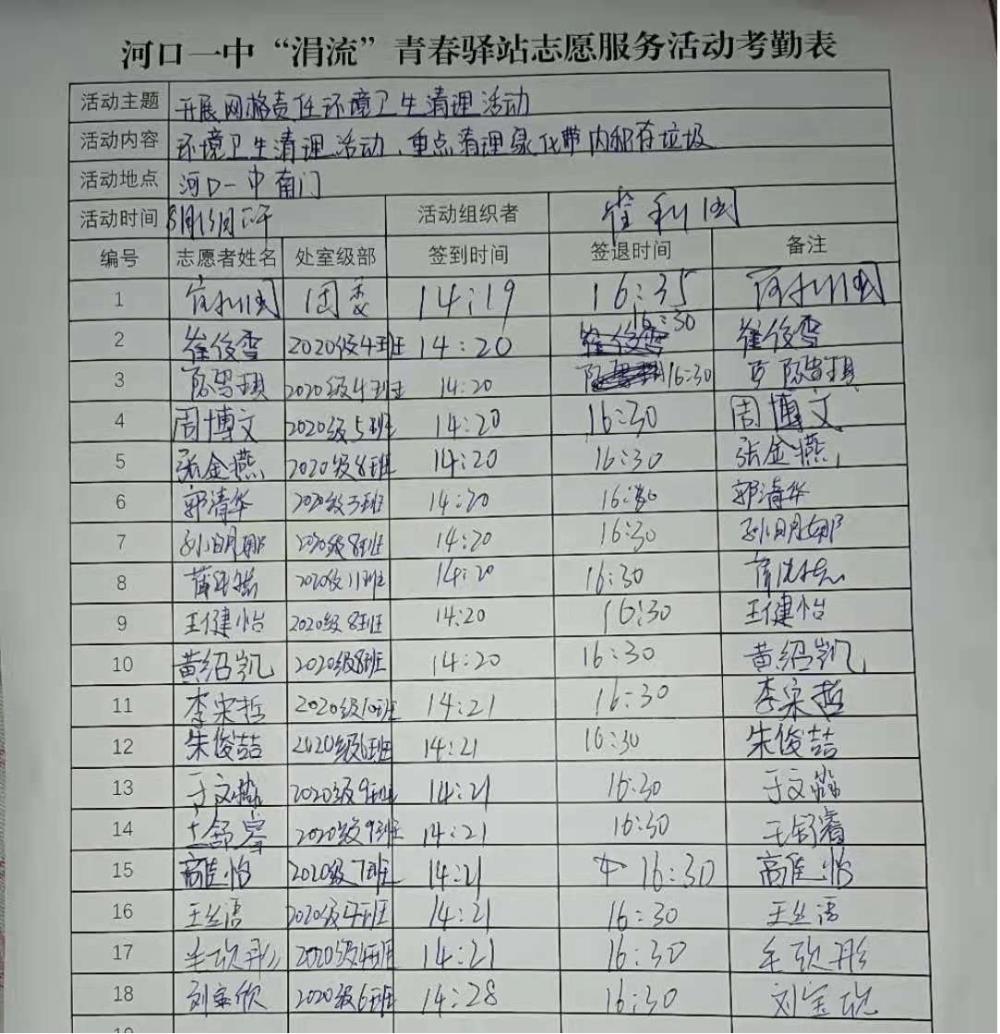 河口一中“涓流”青春驿站志愿服务活动考勤表
活动主题 开展网格责任环境卫生清理活动
活动内容 环境卫生清理活动、重点清理绿化带内积存垃圾
活动地点 河口一中南门
活动时间 活动组织者 崔利国
编号 志愿者姓名 处室级部 签到时间 签退时间 备注
1 团委 14:19 16:35
2 崔俊雪 2020级4班 14:20 16:30 崔俊雪
3 2020级4班 14:20 16:30
4 周博文 2020级5班 14:20 16:30 周博文
5 张金燕 2020级8班 14:20 16:30 张金燕
6 郭清华 2020级3班 14:20 16:30 郭清华
7 孙明娜 2020级8班 14:20 16:30 孙明娜
8 2020级11班 14:20 16:30
9 王健怡 2020级8班 14:20 16:30 王健怡
10 黄绍凯 2020级8班 14:20 16:30 黄绍凯
11 李宋哲 2020级10班 14:21 16:30 李宋哲
12 朱俊喆 2020级6班 14:21 16:30 朱俊喆
13 于文淼 2020级9班 14:21 16:30 于文淼
14 2020级9班 14:21 16:30 王舒睿
15 高佳怡 2020级7班 14:21 16:30 高佳怡
16 王丝语 2020级4班 14:21 16:30 王丝语
17 毛欣彤 2020级4班 14:21 16:30 毛欣彤
18 2020级6班 14:28 16:30